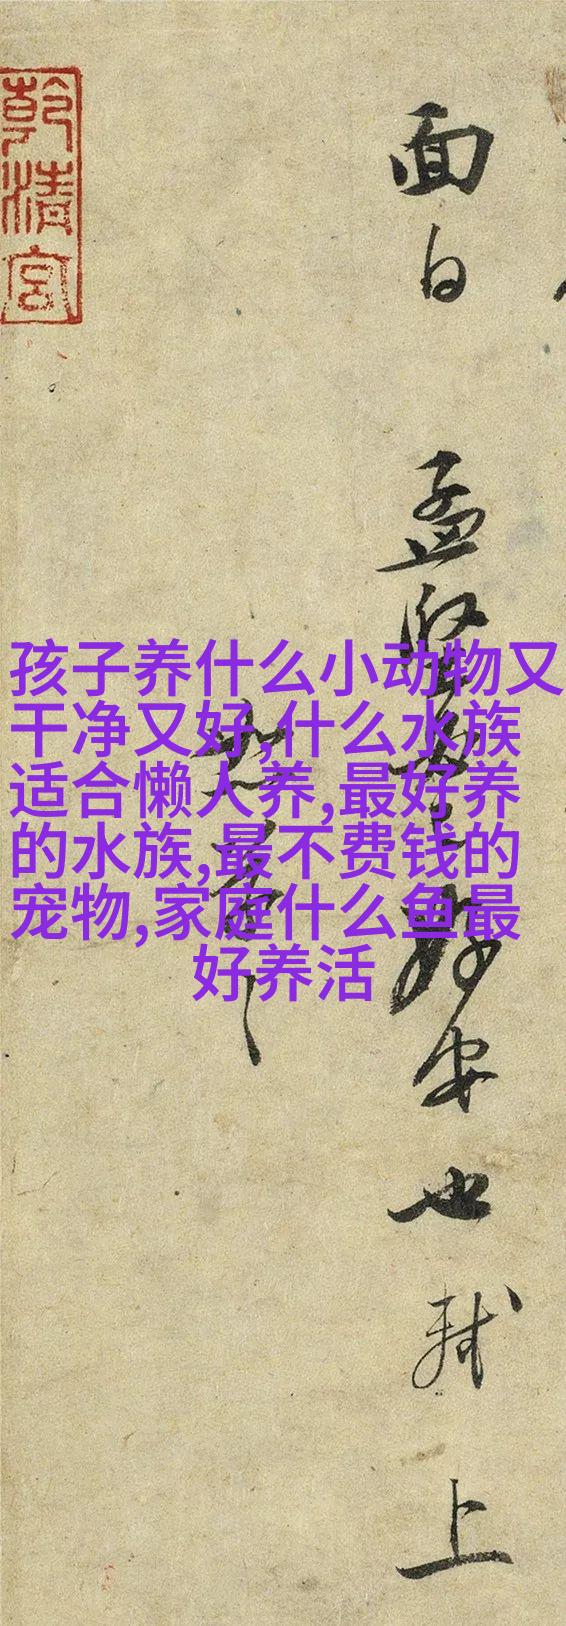 乾清宮
面白
孟堅必已好安也軾上
恕草草
孩子养什么小动物又
干净又好,什么水族
适合懒人养,最好养
的水族,最不费钱的
宠物,家庭什么鱼最
好养活